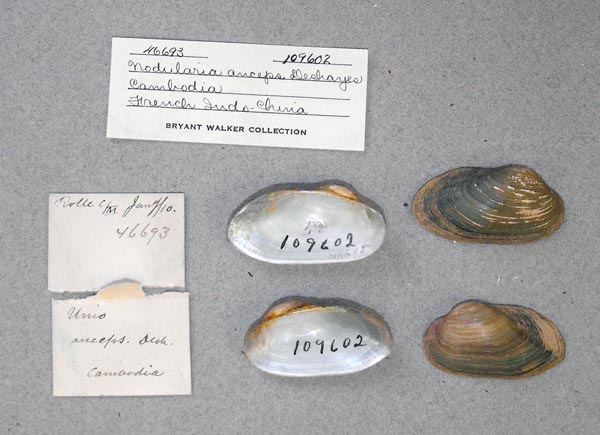 46693 109602
Nodularia anceps Deshayes
Cambodia
French Indo-China
BRYANT WALKER COLLECTION
Rolle Jan/10.
46693
Unio
anceps. Desh.
Cambodia
109602
109602